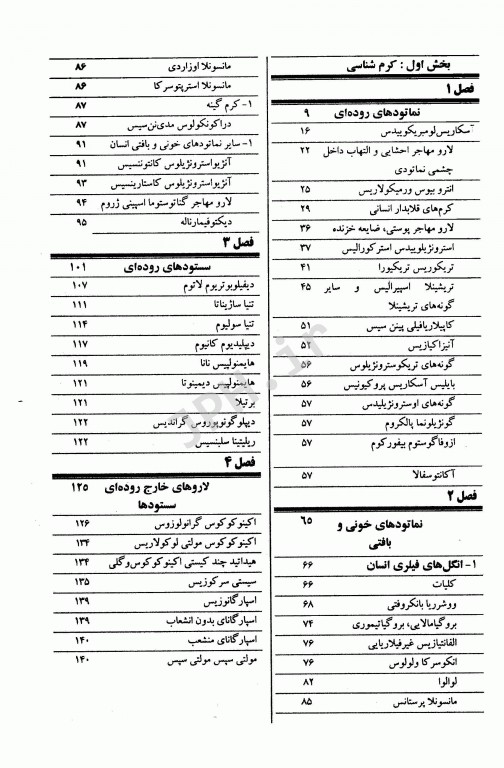 بخش اول : کرم شناسی
فصل ۱
نماتودهای روده‌ای ۹
آسکاریس‌لومبریکوییدس ۱۶
لارو مهاجر احشایی و التهاب داخل ۲۲
چشمی نماتودی
انترو بیوس ورمیکولاریس ۲۵
کرم‌های قلابدار انسانی ۲۹
لارو مهاجر پوستی، ضایعه خزنده ۳۶
استرونژیلوییدس استرکورالیس ۳۷
تریکوریس تریکیورا ۴۱
تریشینلا اسپیرالیس و سایر ۴۵
گونه‌های تریشینلا
کاپیلاریافیلی پینن سیس ۵۱
آنیزاکیازیس ۵۲
گونه‌های تریکوسترونژیلوس ۵۶
بایلیس آسکاریس پروکیونیس ۵۶
گونه‌های اوسترونژیلیدس ۵۷
گونژیلونما پالکروم ۵۷
ازوفاگوستوم بیفورکوم ۵۷
آکانتوسفالا ۵۷
فصل ۲
نماتودهای خونی و ۶۵
بافتی
۱- انگل‌های فیلری انسان ۶۶
کلیات ۶۶
ووشرریا بانکروفتی ۶۸
بروگیامالایی، بروگیاتیموری ۷۴
الفانتیازیس غیرفیلاریایی ۷۶
انکوسرکا ولولوس ۷۶
لوالوا ۸۲
مانسونلا پرستانس ۸۵
مانسونلا اوزاردی ۸۶
مانسونلا استرپتوسرکا ۸۶
۱- کرم گینه ۸۷
دراکونکولوس مدی‌نن‌سیس ۸۷
۱- سایر نماتودهای خونی و بافتی انسان ۹۱
آنژیواسترونژیلوس کانتوننسیس ۹۱
آنژیواسترونژیلوس کاستاریننسیس ۹۳
لارو مهاجر گناتوستوما اسپینی ژروم ۹۴
دیکتوفیمارناله ۹۵
فصل ۳
سستودهای روده‌ای ۱۰۱
دیفیلوبوتریوم لاتوم ۱۰۷
تنیا ساژیناتا ۱۱۱
تنیا سولیوم ۱۱۴
دیپلیدیوم کانیوم ۱۱۷
هایمنولپیس نانا ۱۱۹
هایمنولپیس دیمینوتا ۱۲۱
برتیلا ۱۲۱
دیپلوگونوپوروس گراندیس ۱۲۲
ریلیتینا سلبنسیس ۱۲۲
فصل ۴
لاروهای خارج روده‌ای ۱۲۵
سستودها
اکینوکوکوس گرانولوزوس ۱۲۶
اکینوکوکوس مولتی لوکولاریس ۱۳۴
هیداتید چند کیستی اکینوکوکوس‌وگلی ۱۳۴
سیستی سرکوزیس ۱۳۵
اسپارگانوزیس ۱۳۹
اسپارگانای بدون انشعاب ۱۳۹
اسپارگانای منشعب ۱۴۰
مولتی سپس مولتی سپس ۱۴۰
JPH.ir